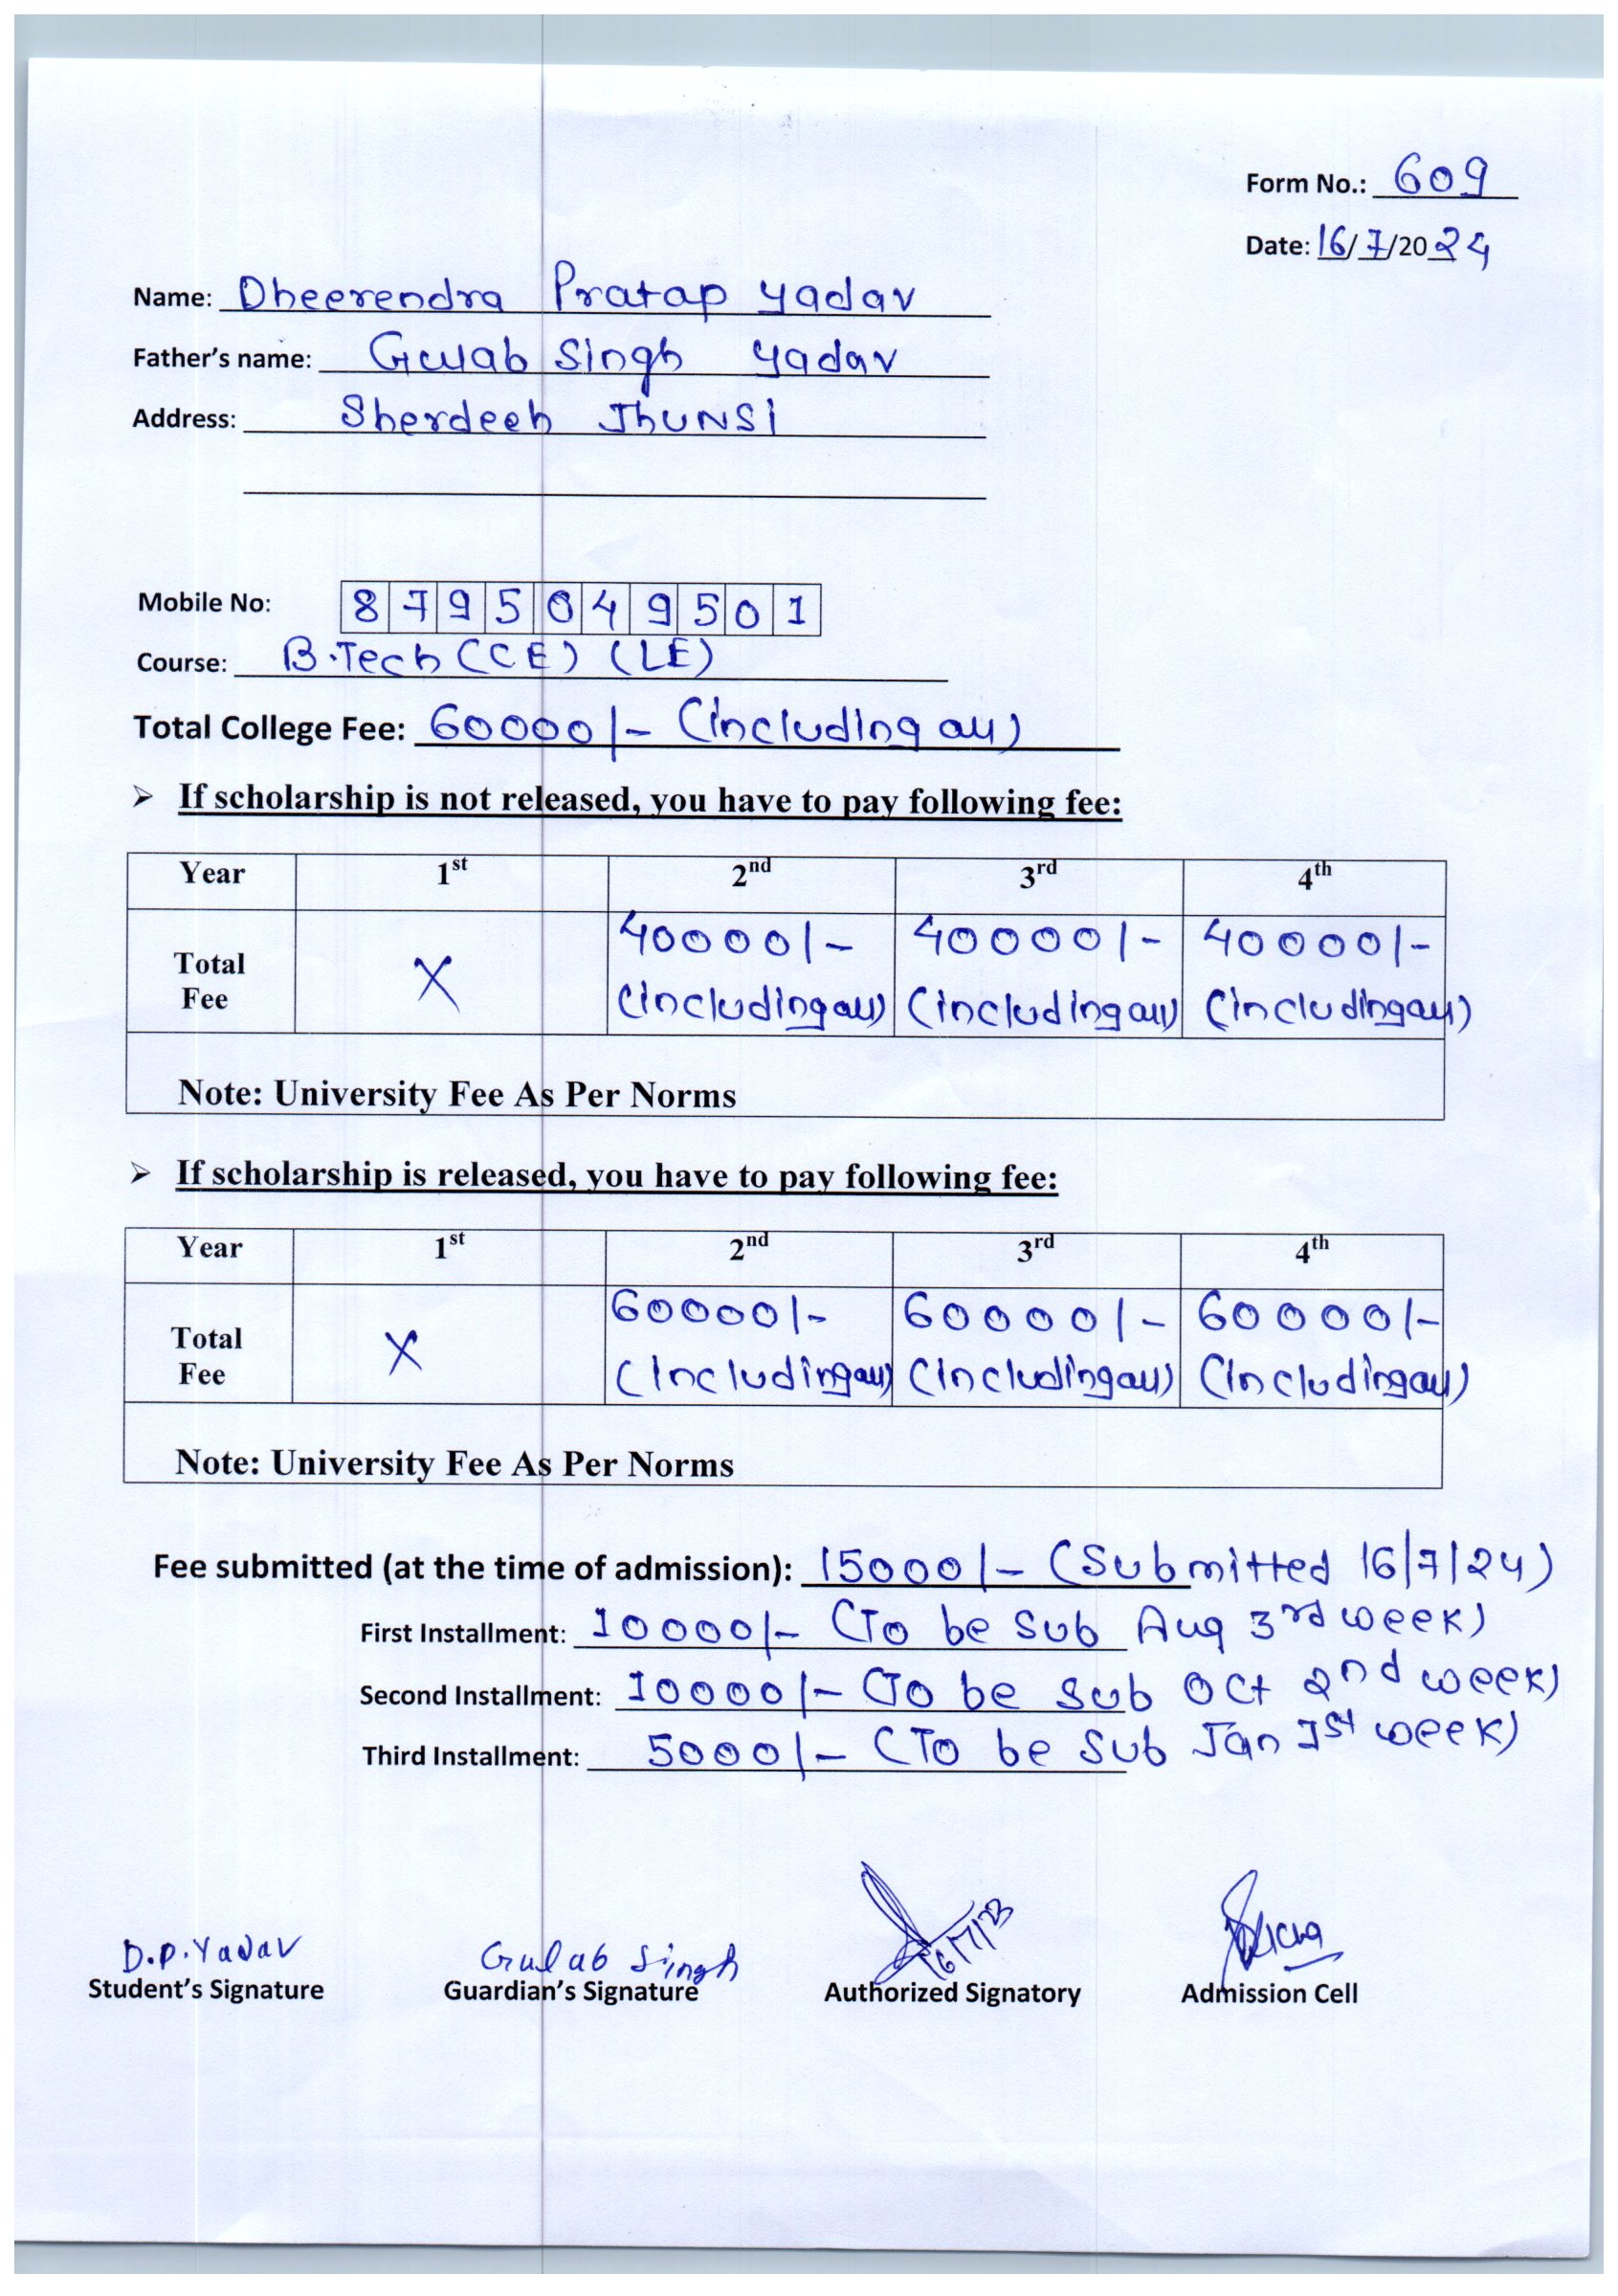 Form No.: 609
Date: 16/7/2024
Name: Dheerendra Pratap Yadav
Father's name: Gulab Singh Yadav
Address: Sherdeeh JhUNSI
Mobile No: 8795049501
Course: B.Tech (CE) (LE)
Total College Fee: 60000/- (including all)
➢ If scholarship is not released, you have to pay following fee:
Year 1st 2nd 3rd 4th
Total Fee X 40000/- (including all) 40000/- (including all) 40000/- (including all)
Note: University Fee As Per Norms
➢ If scholarship is released, you have to pay following fee:
Year 1st 2nd 3rd 4th
Total Fee X 60000/- (Including all) 60000/- (Including all) 60000/- (Including all)
Note: University Fee As Per Norms
Fee submitted (at the time of admission): 15000/- (Submitted 16/7/24)
First Installment: 10000/- (To be Sub Aug 3rd week)
Second Installment: 10000/- (To be Sub Oct 2nd week)
Third Installment: 5000/- (To be Sub Jan 1st week)
D.P. Yadav Gulab Singh 16/7/23
Student's Signature Guardian's Signature Authorized Signatory Admission Cell